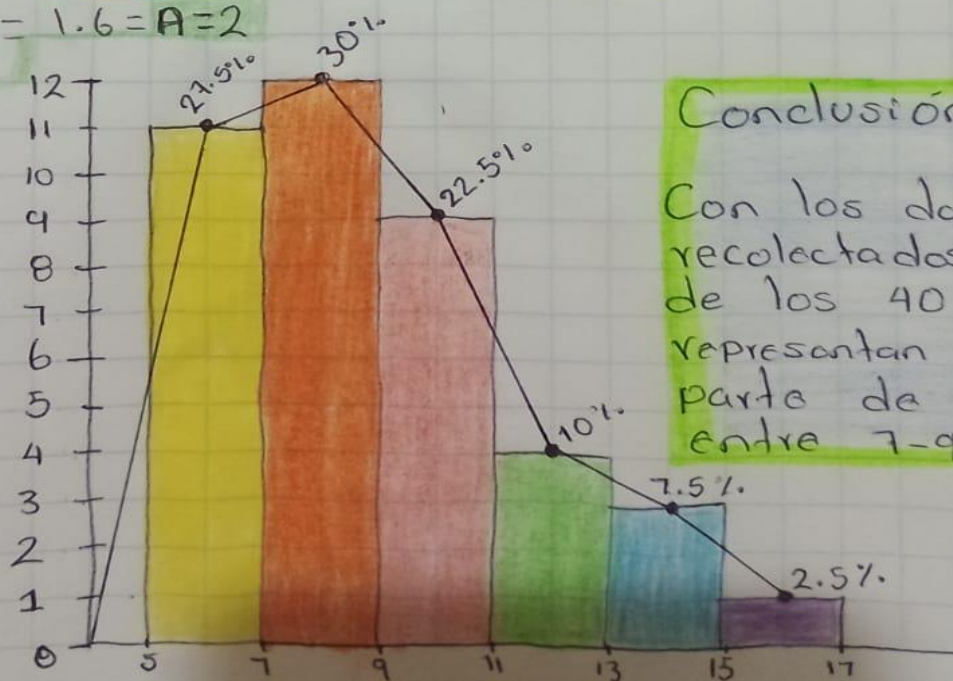 = 1.6 = A = 2
12
11
10
9
8
7
6
5
4
3
2
1
0
27.5%
30%
22.5%
10%
7.5%
2.5%
5 7 9 11 13 15 17
Conclusión
Con los
recolectados
de los 40
representan
parte de
entre 7-9